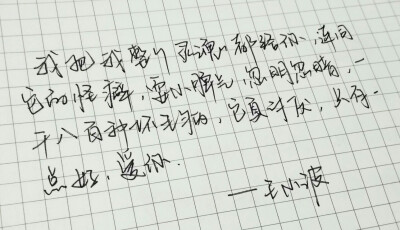 我把我整个灵魂都给你，连同
它的怪癖，耍小脾气，忽明忽暗，一
千八百种坏毛病，它真讨厌，只有一
点好，爱你.
——王小波